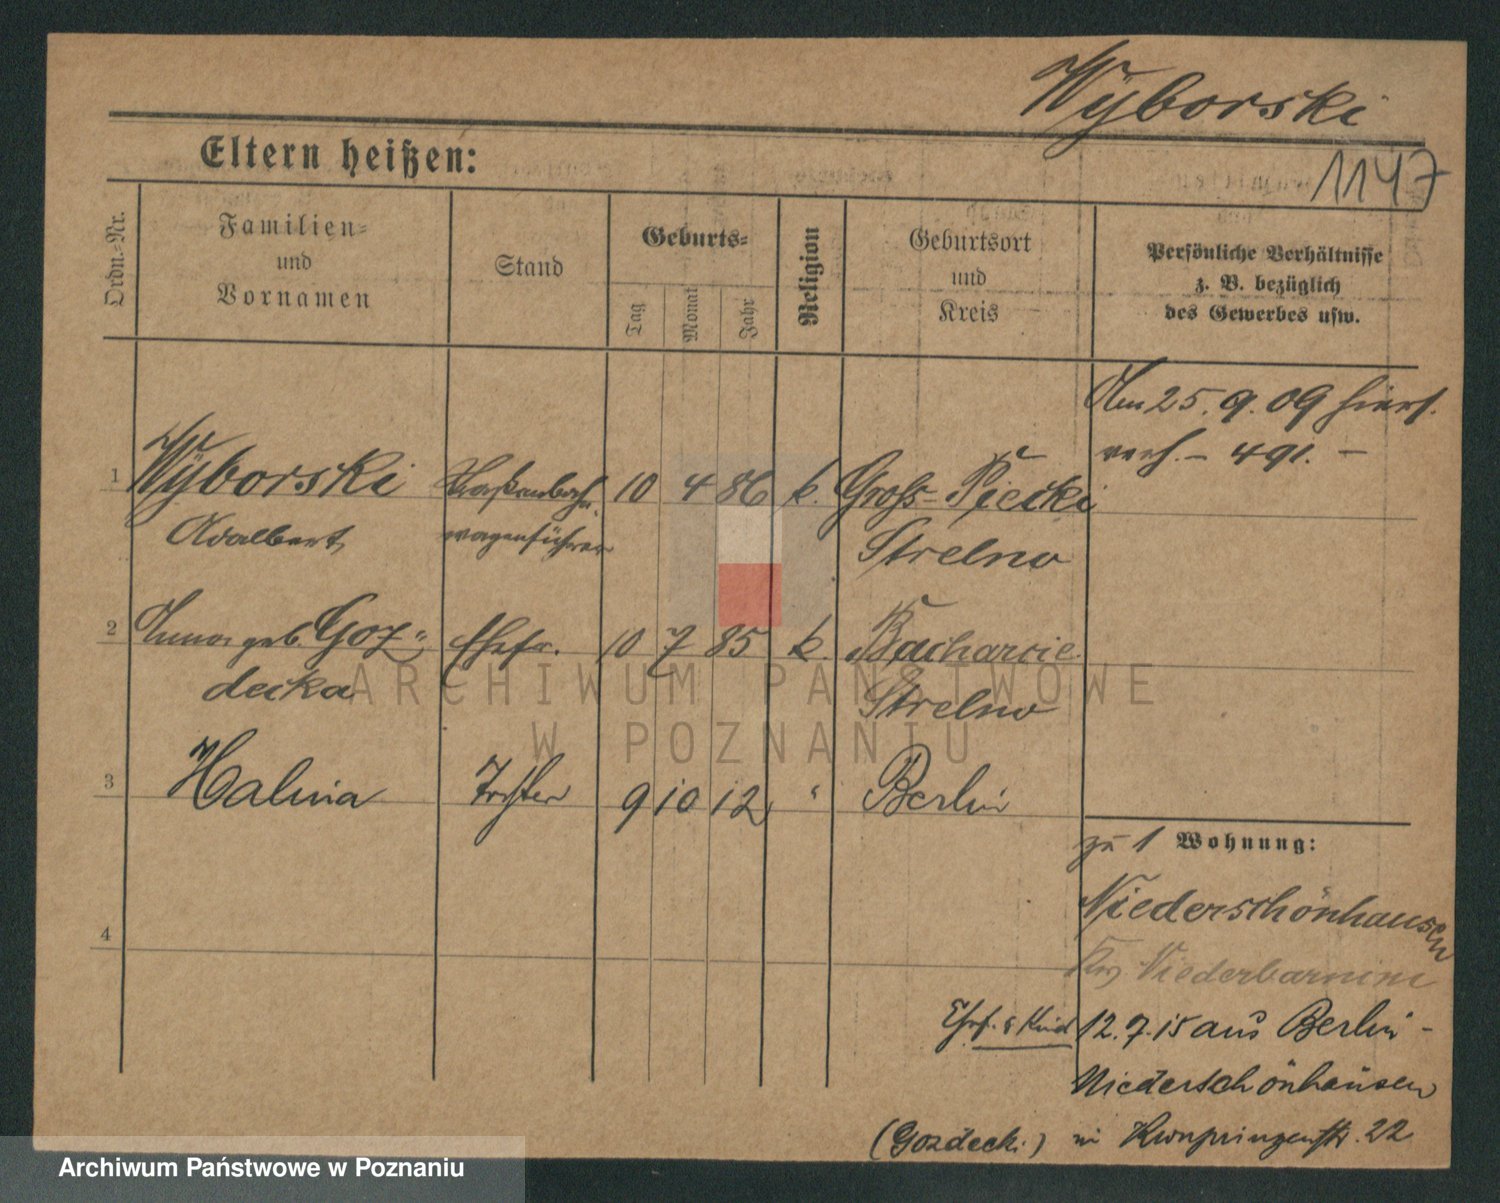 Wÿborski
1147
Eltern heißen:
Ordn.-Nr.
Familien-
und
Vornamen
Stand
Geburts-
Tag
Monat
Jahr
Religion
Geburtsort
und
Kreis
Persönliche Verhältnisse
z. B. bezüglich
des Gewerbes usw.
Am 25. 9. 09 hiers.
verh. – 491. –
1 Wÿborski Straßenbahn- 10 4 86 k. Gross-Piecki
Adalbert wagenführer Strelno
2 Anna geb. Goz- Ehefr. 10 7 85 k. Bacharcie
decka Strelno
3 Halina Tochter 9 10 12 " Berlin
zu 1 Wohnung:
Niederschönhausen
4
Niederbarnim
Ehefr. & Kind 12. 7. 15 aus Berlin-
Niederschönhausen
(Gozdeck.) in Kronprinzenstr. 22
ARCHIWUM PAŃSTWOWE
W POZNANIU
Archiwum Państwowe w Poznaniu